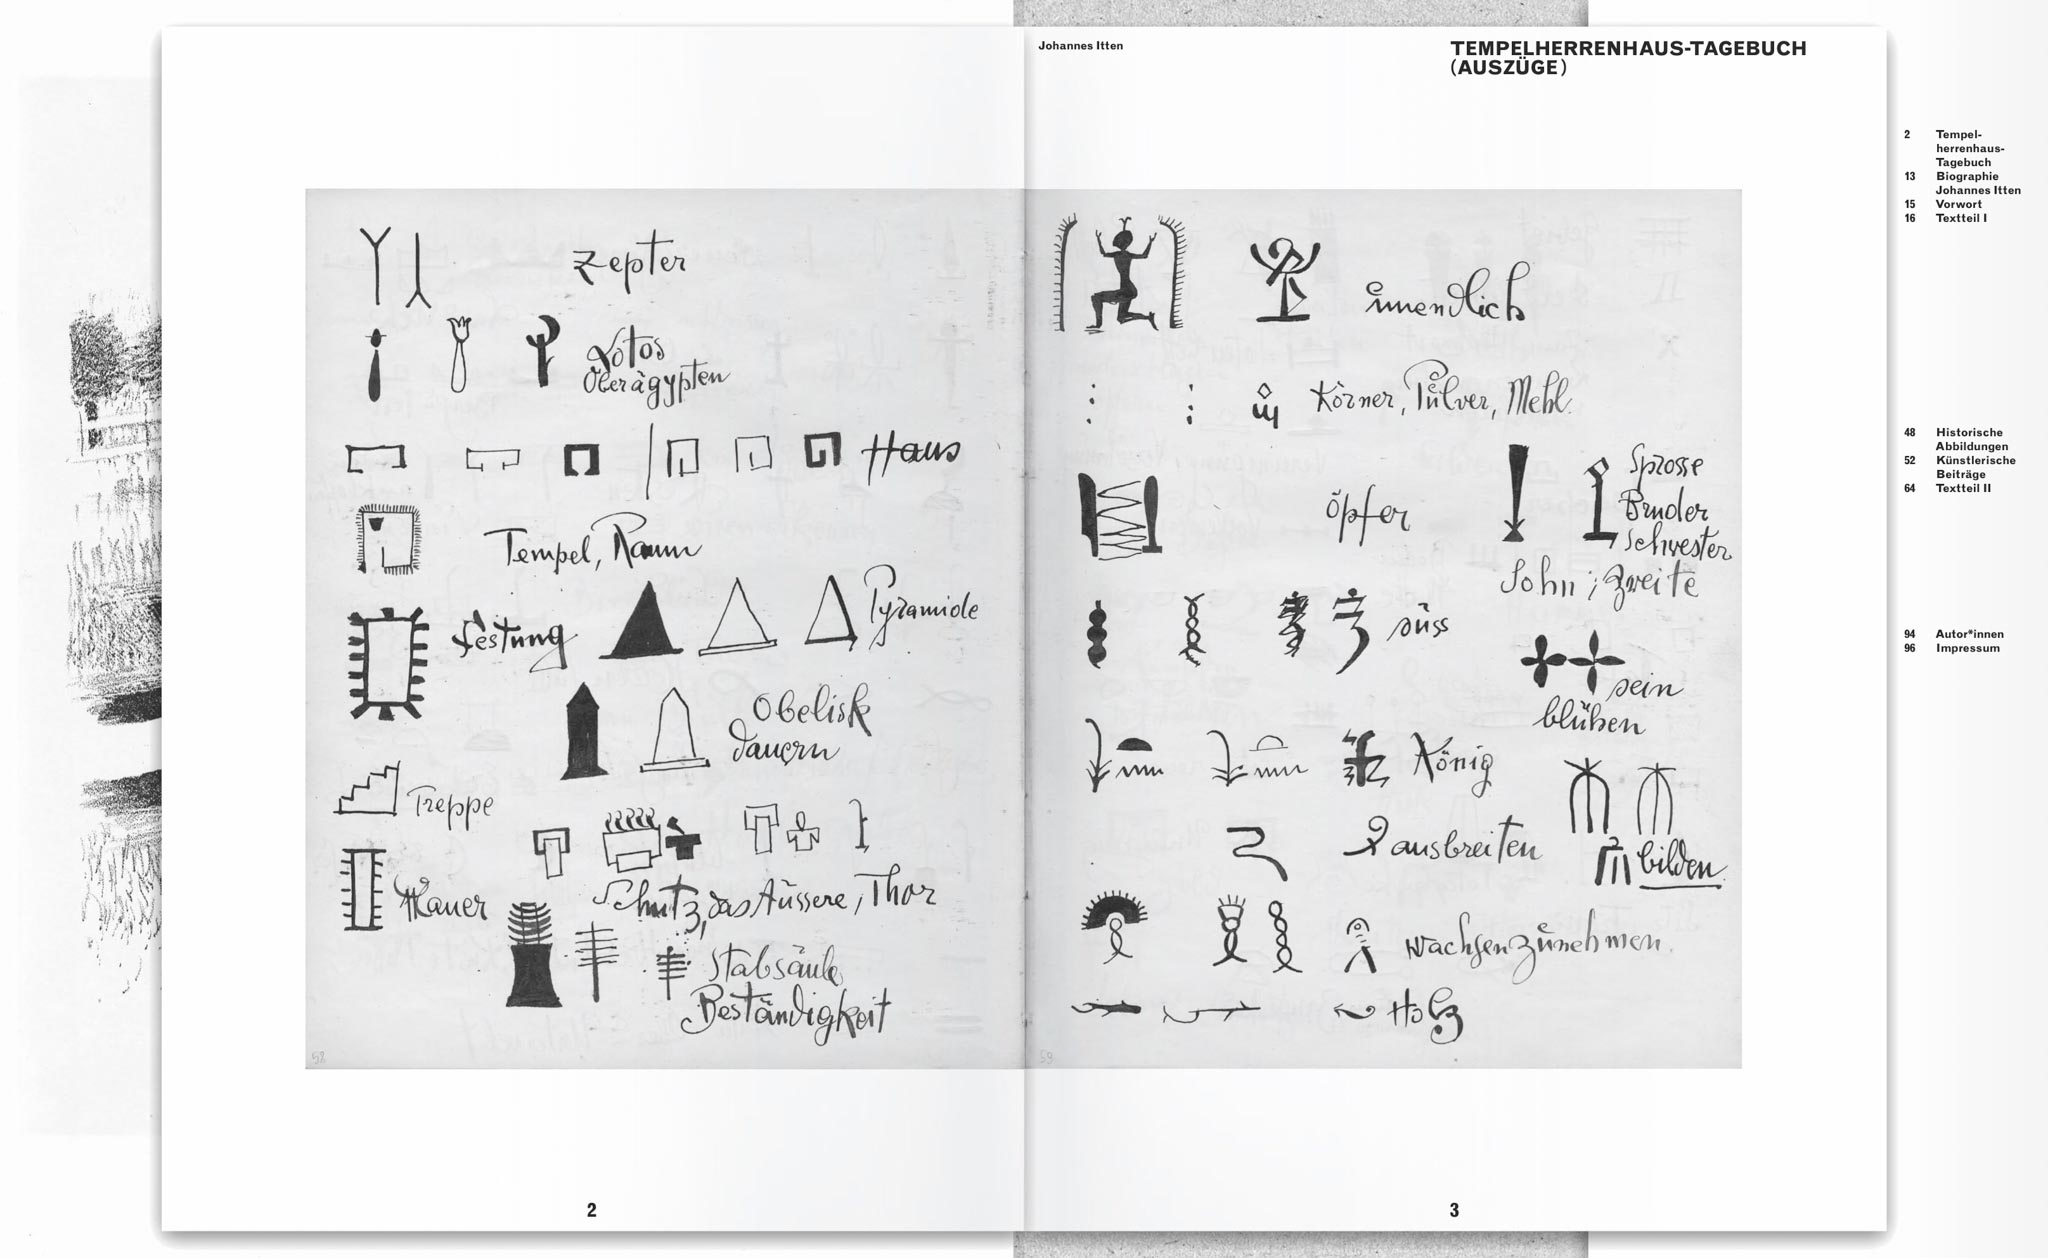 Johannes Itten
TEMPELHERRENHAUS-TAGEBUCH
(AUSZÜGE)
Zepter
Lotos
Oberägypten
Haus
Tempel, Raum
Festung
Pyramide
Obelisk
dauern
Treppe
Mauer
Schutz, das Äussere, Thor
Stabsäule
Beständigkeit
58
unendlich
Körner, Pulver, Mehl.
Opfer
Sprosse
Bruder
Schwester
Sohn ; Zweite
süss
sein
blühen
König
ausbreiten
bilden
wachsen zunehmen.
Holz
59
2
3
2 Tempel-
herrenhaus-
Tagebuch
13 Biographie
Johannes Itten
15 Vorwort
16 Textteil I
48 Historische
Abbildungen
52 Künstlerische
Beiträge
64 Textteil II
94 Autor*innen
96 Impressum